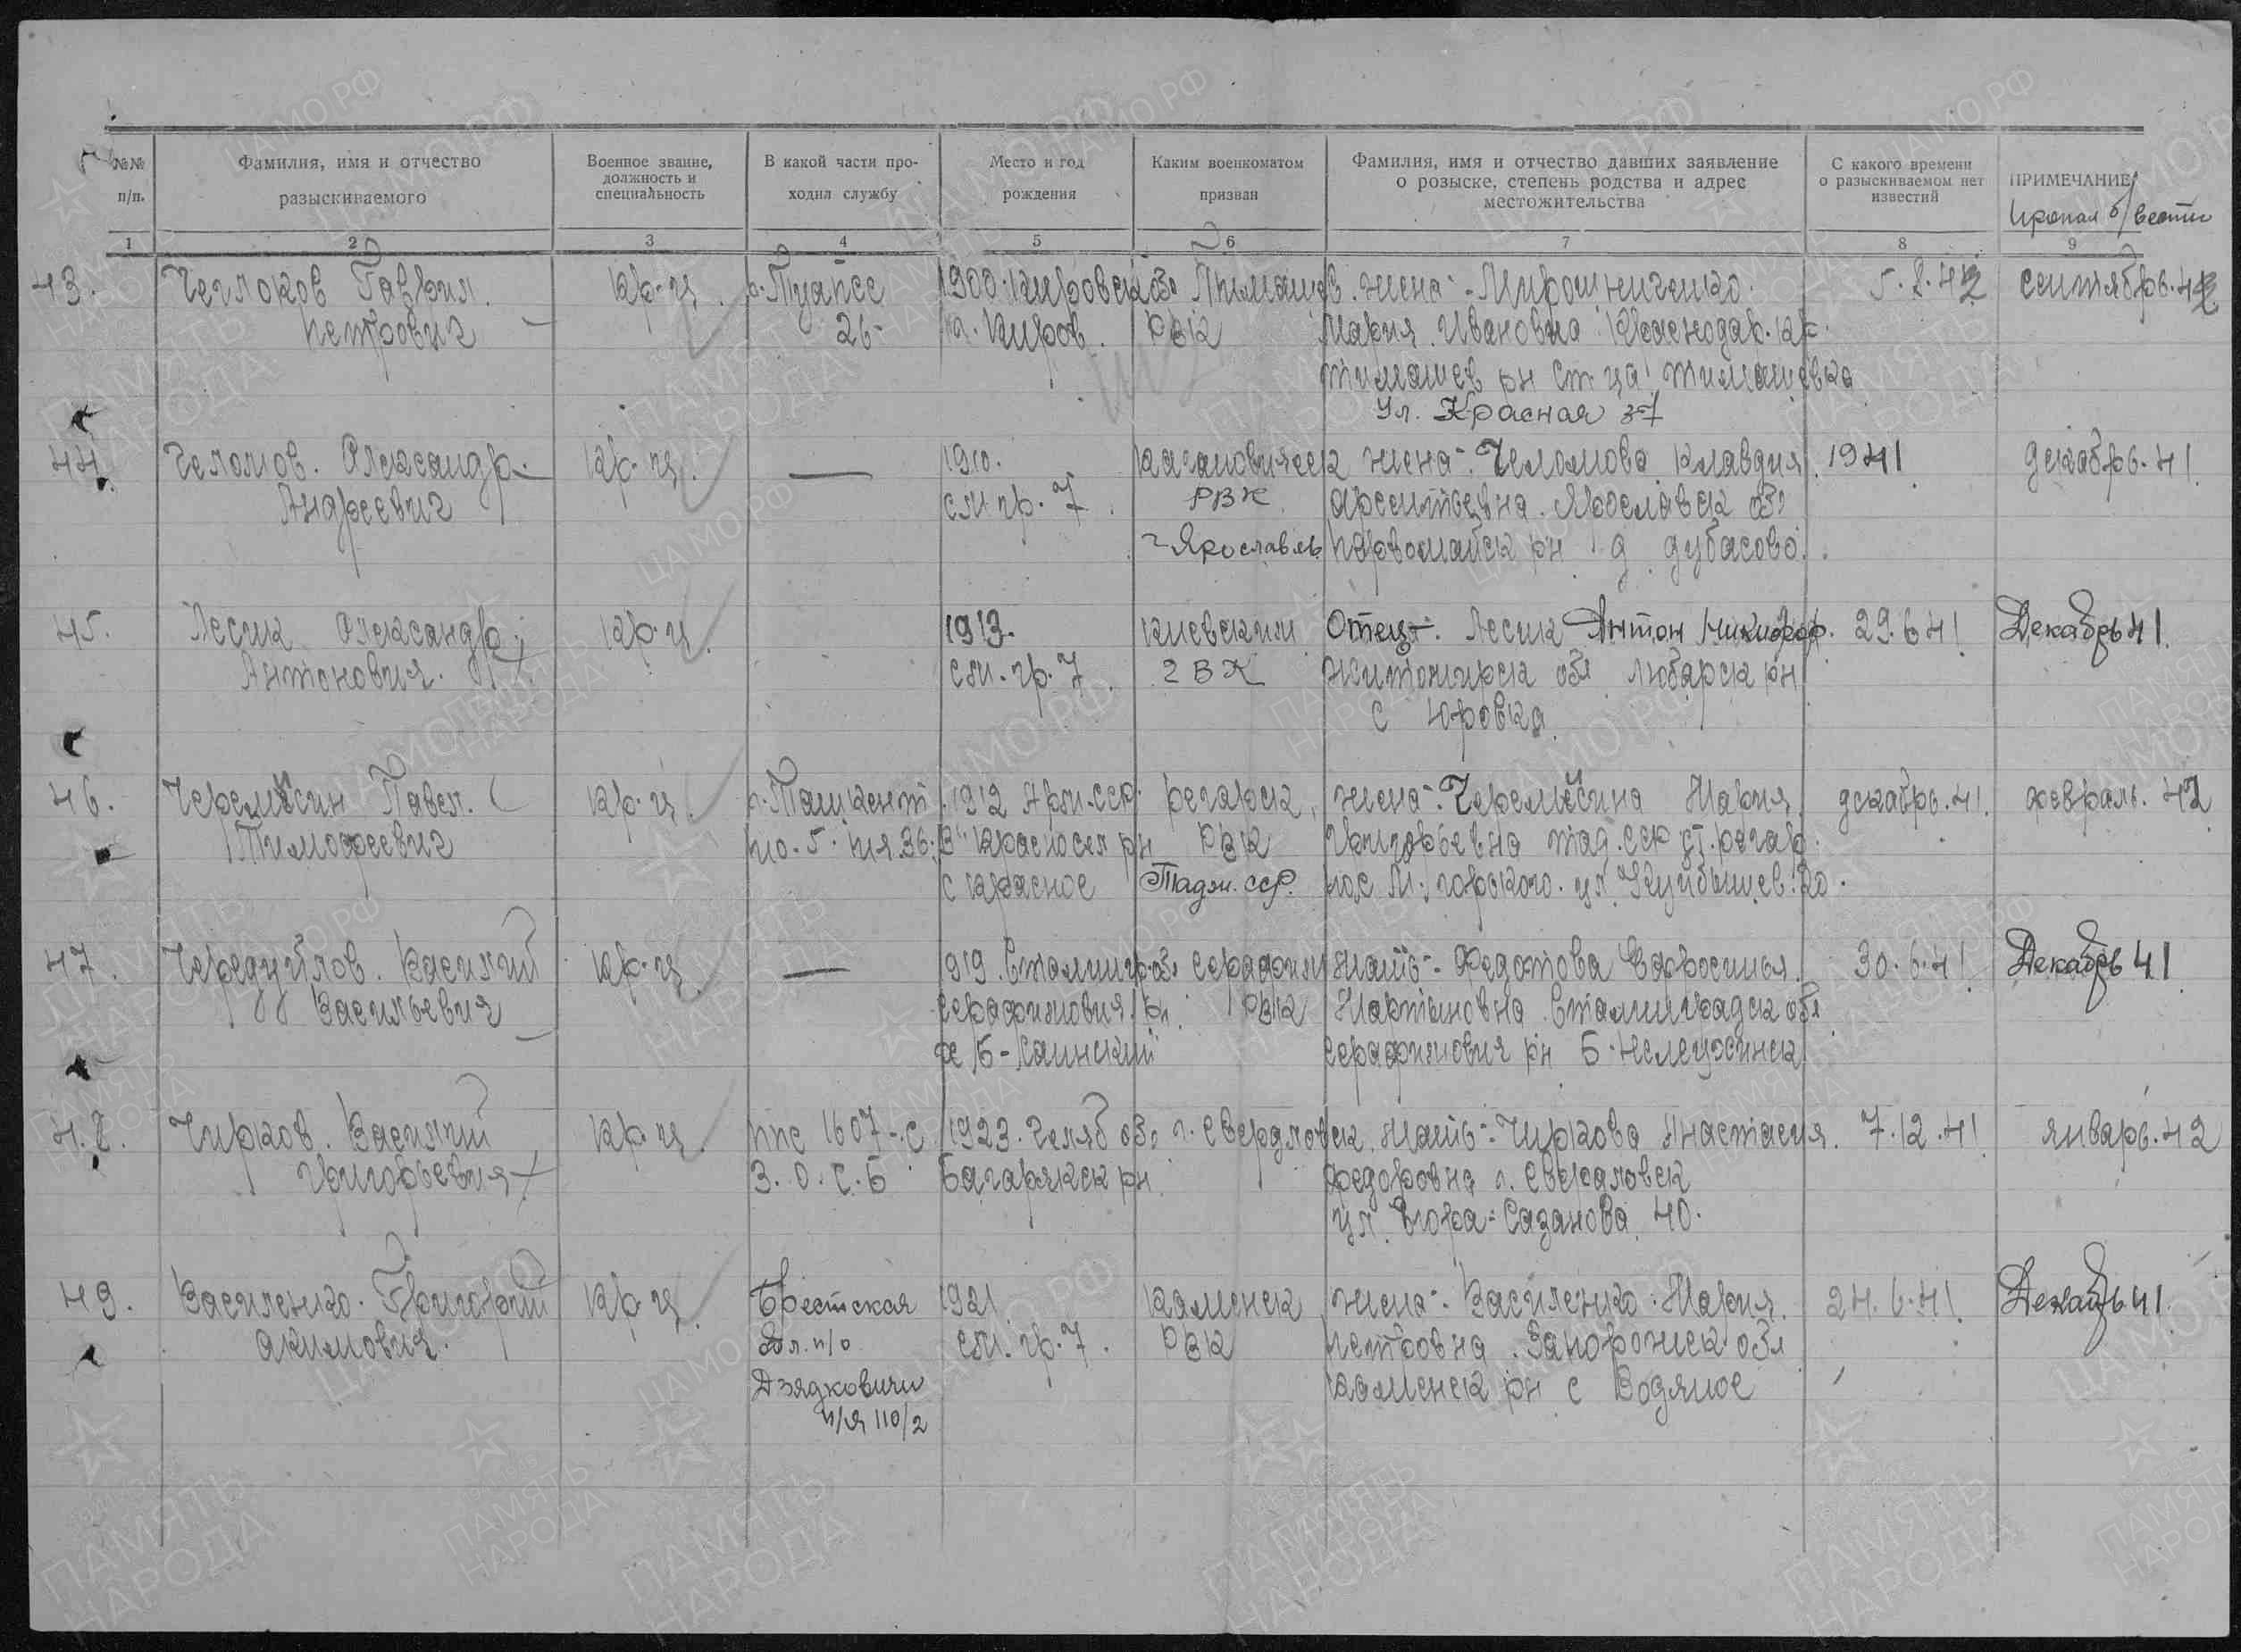 №№ п/п.
Фамилия, имя и отчество разыскиваемого
Военное звание, должность и специальность
В какой части проходил службу
Место и год рождения
Каким военкоматом призван
Фамилия, имя и отчество давших заявление о розыске, степень родства и адрес местожительства
С какого времени о разыскиваемом нет известий
ПРИМЕЧАНИЕ
Пропал б/вести
1 2 3 4 5 6 7 8 9
43. Чеглоков Гаврил. кр-ц. г. Туапсе 1900. Кировск. обл Тимашев. жена - Мирошниченко. 5.8.42 сентябрь. 42
Петрович 26- г. Киров. РВК Мария Ивановна Краснодар. кр.
тимашев рн ст ца тимашевка
ул. Красная 37
44. Челомов. Александр. кр-ц. — 1910. Кагановическ жена - Челомова Клавдия 1941 декабрь. 41
Андреевич см. гр. 7. РВК Арсентьевна. Ярославск обл
г Ярославль Первомайск рн д дубасово.
45. Лесик Александр. кр-ц. 1913. Киевским Отец - Лесик Антон Никифор. 29.6 41 Декабрь 41
Антонович. см. гр. 7. ГВК Житомирск обл Любарск рн
с Юровка
46. Черемисин Павел. кр-ц. г. Ташкент 1912 Арм-сср. регарск жена - Черемисина Мария декабрь. 41. февраль. 42
Тимофеевич по. 5. пя. 36. Красносел рн РВК Григорьевна тад. сср ст. регар.
с красное Тадж. сср. пос М. горького. ул. Куйбышев. 20.
47. Чередуйлов. Василий кр-ц. — 919. Сталингр. обл Серафим Мать - Федотова Ефросинья. 30.6.41 Декабрь 41
Васильевич Серафимович. рн. РВК Мартыновна Сталинградск обл
Серафимович рн
48. Чирков. Василий кр-ц. ппс 1607-с 1923. Челяб обл г. Свердловск Мать - Чиркова Анастасия. 7.12.41 январь. 42
Григорьевич З. О. С. Б Багарякск рн. Федоровна г. Свердловск
ул. Сазанова 40.
49. Василенко. Григорий кр-ц. Брестская 1921 Каменск жена - Василенко Мария. 24.6.41 Декабрь 41
Акимович. обл. п/о см. гр. 7. РВК Петровна. Запорожск обл
Дзядковичи Каменск рн с Водяное
п/я 110/2
ЦАМО РФ
ПАМЯТЬ НАРОДА